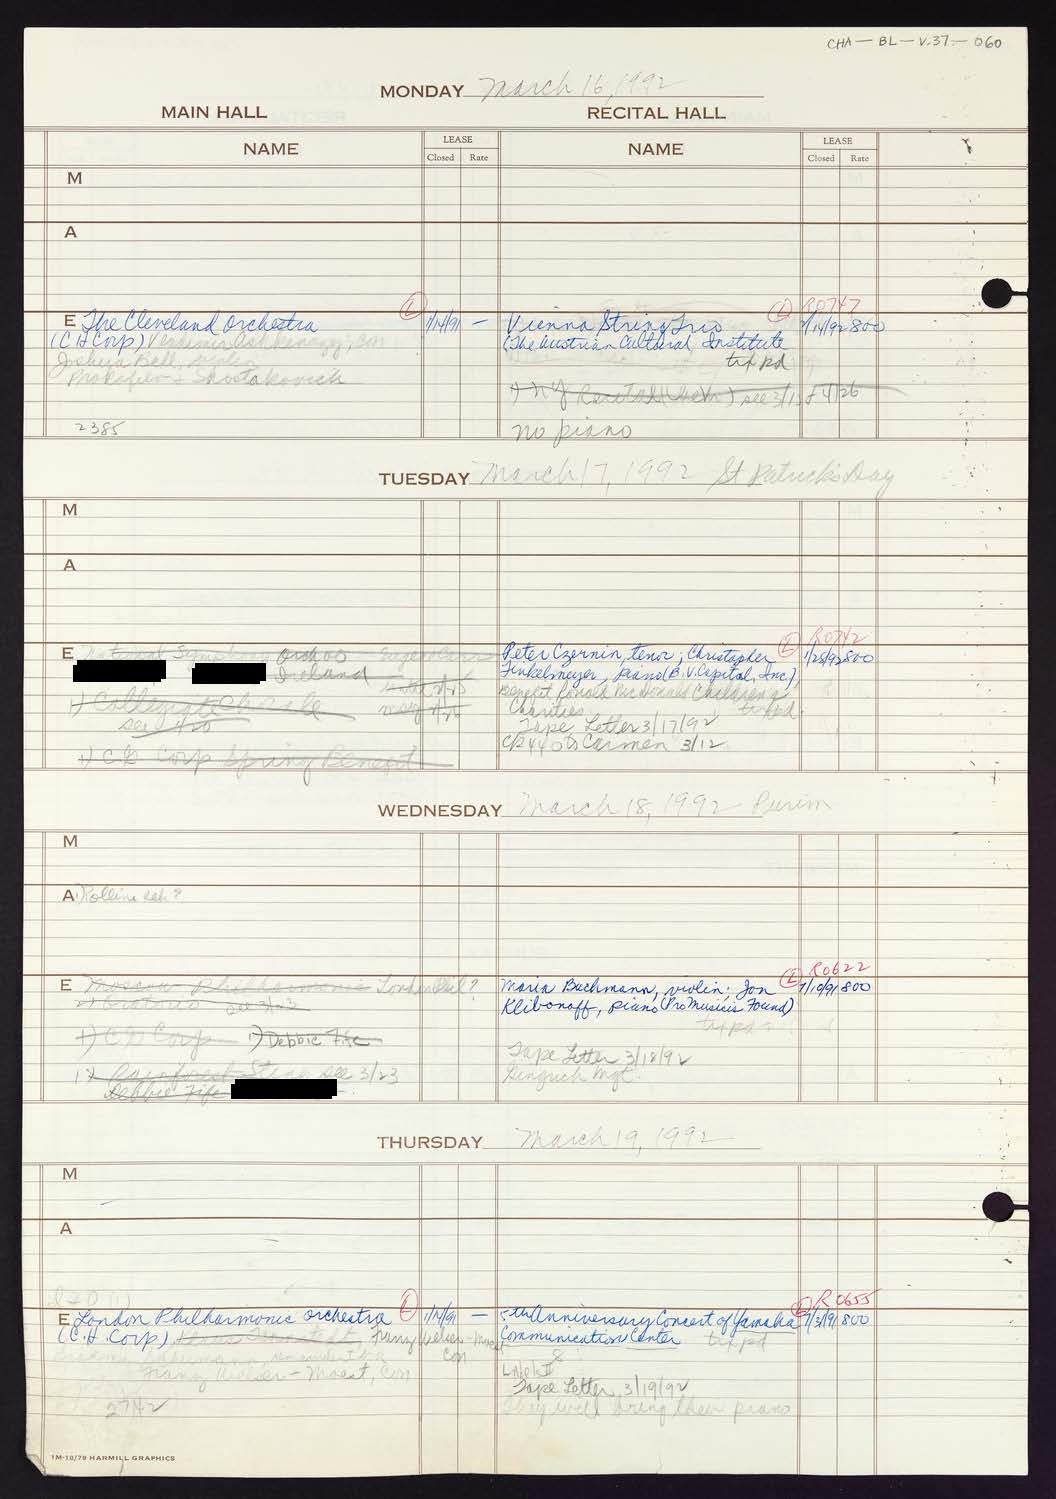 CHA — BL — V.37 — 060
MONDAY March 16, 1992
MAIN HALL RECITAL HALL
NAME LEASE Closed Rate NAME LEASE Closed Rate
M
A
E The Cleveland Orchestra L 1/14/91 —
(C H Corp) Vladimir Ashkenazy, con
Joshua Bell, violin
Prokofiev + Shostakovich
2385
R0747
Vienna String Trio L 1/14/92 800
(The Austrian Cultural Institute
tix pd
1) NY Recital see 3/15 + 4/26
no piano
TUESDAY March 17, 1992 St Patrick's Day
M
A
E National Symphony Orch
Ireland
1) Collegiate Chorale
see 4/20
1) C H Corp Spring Benefit
R0742
Peter Czernin, tenor; Christopher L 1/28/92 800
Finkelmeyer, piano (B.V. Capital, Inc.)
benefit Ronald McDonald Children's
Charities tix pd
Tape Letter 3/17/92
to Carmen 3/12
WEDNESDAY March 18, 1992 Purim
M
A 1) Rollins reh?
E Moscow Philharmonic London Phil?
2) Oratorio see 3/23
1) C H Corp 1) Debbie Fife
1) Rainforest Sting see 3/23
Debbie Fife
R0622
Maria Bachmann, violin; Jon L 7/10/91 800
Klibonoff, piano (Pro Musicis Found)
tix pd
Tape Letter 3/18/92
Gingrich Mgt.
THURSDAY March 19, 1992
M
A
E London Philharmonic Orchestra L 1/14/91 —
(C.H. Corp) Klaus Tennstedt Franz Welser-Moest
con
Franz Welser-Moest, con
2742
R0655
5th Anniversary Concert of Yamaha L 7/31/91 800
Communication Center tix pd
Tape Letter 3/19/92
They will bring their piano
1M-10/79 HARMILL GRAPHICS